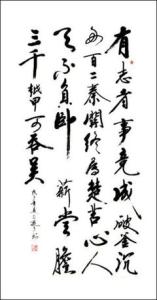 有志者事竟成破釜沉
舟百二秦關終屬楚苦心人
天不負臥薪嘗膽
三千越甲可吞吳